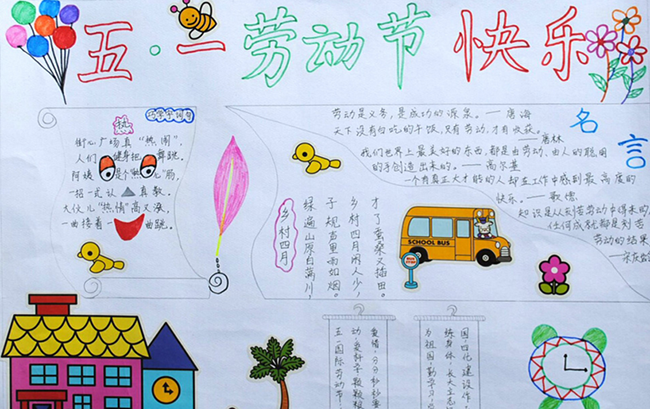 五·一劳动节 快乐
巧学字词句
热
街心广场真"热闹"，
人们健身把舞跳。
一招一式认真教。
大伙儿"热情"高又涨，
一曲接着一曲跳。
乡村四月
绿遍山原白满川，
子规声里雨如烟。
乡村四月闲人少，
才了蚕桑又插田。
名言
劳动是义务，是成功的源泉。——唐海
天下没有白吃的午饭，只有劳动，才有收获。
——唐林
我们世界上最美好的东西，都是由劳动、由人的聪明
的手创造出来的。——高尔基
一个有真正大才能的人却在工作中感到最高度的
快乐。——歌德
知识是从刻苦劳动中得来的，
任何成就都是刻苦
劳动的结果
——宋庆龄
SCHOOL BUS
BUS STOP
五一国际劳动节，